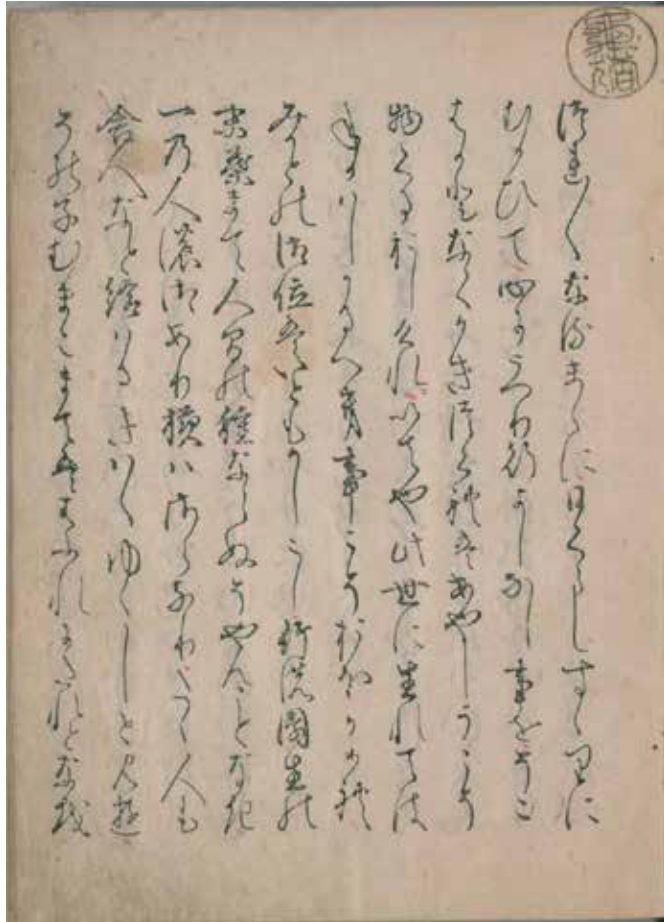 つれ〳〵なるまゝに日くらしすゝりに
むかひて心にうつり行よしなし事をそこ
はかとなくかきつくれはあやしうこそ
物くるおしけれいてや此世に生れては
ねかはしかるへき事こそおほかめれ
みかとの御位はいともかしこし竹の園生の
末葉まて人間の種ならぬそやんことなき
一の人の御あり様はさらなりたゝ人も
舎人なと給はるきはゝゆゝしと見ゆ
その子むまこまてははふれにたれとなを